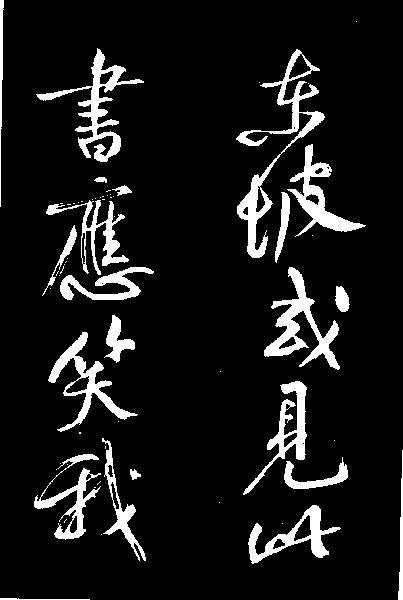 东坡或见此
書應笑我